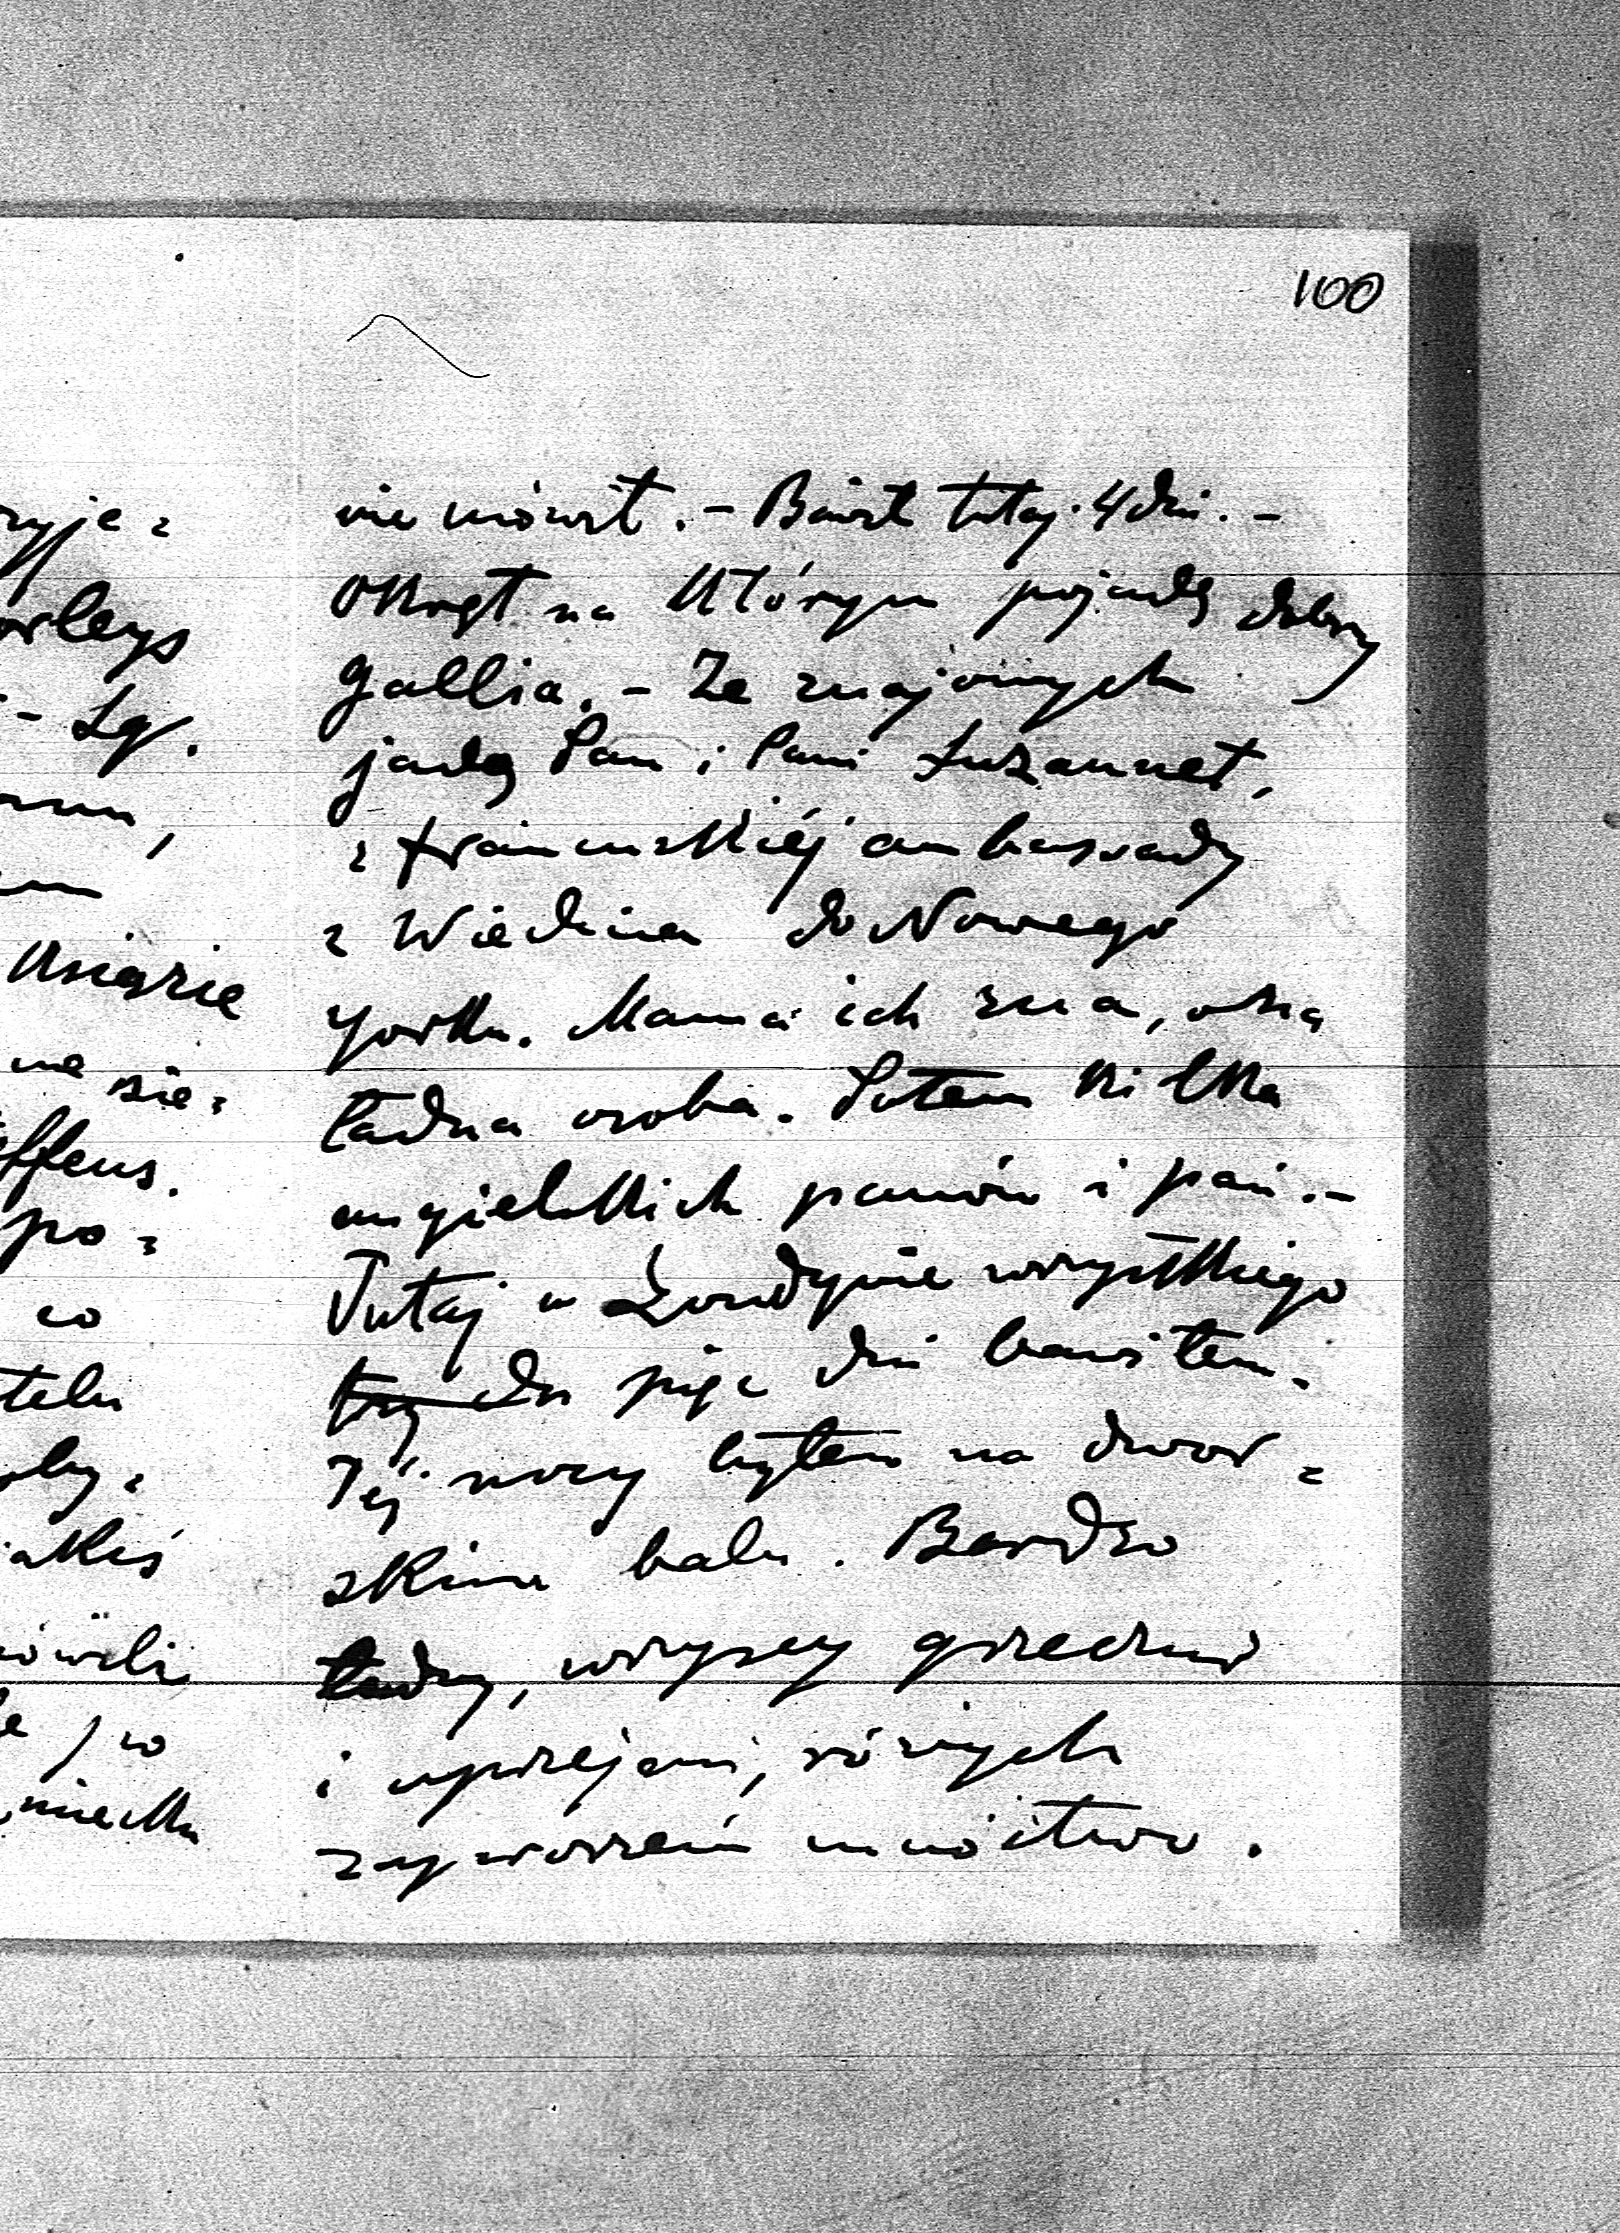 100
nie mówił. – Bawił tutaj 4 dni. –
Okręt na którym pojadę dobry
Gallia. – Ze znajomych
jadą Pan i Pani Suzannet,
z francuskiéj ambassady
z Wiednia do Nowego
Yorku. Mama ich zna, ona
ładna osoba. Potem kilka
angielskich panów i pań. –
Tutaj w Londynie wszystkiego
trzy do pięc dni bawiłem.
Téj nocy byłem na dwor=
skim balu. Bardzo
ładny, wszyscy grzeczni
i uprzejmi, różnych
zaproszeń mnóstwo.
ryje=
orleys
– Lg.
Książię
na się=
effens.
po=
co
telu
jakiś
mówili